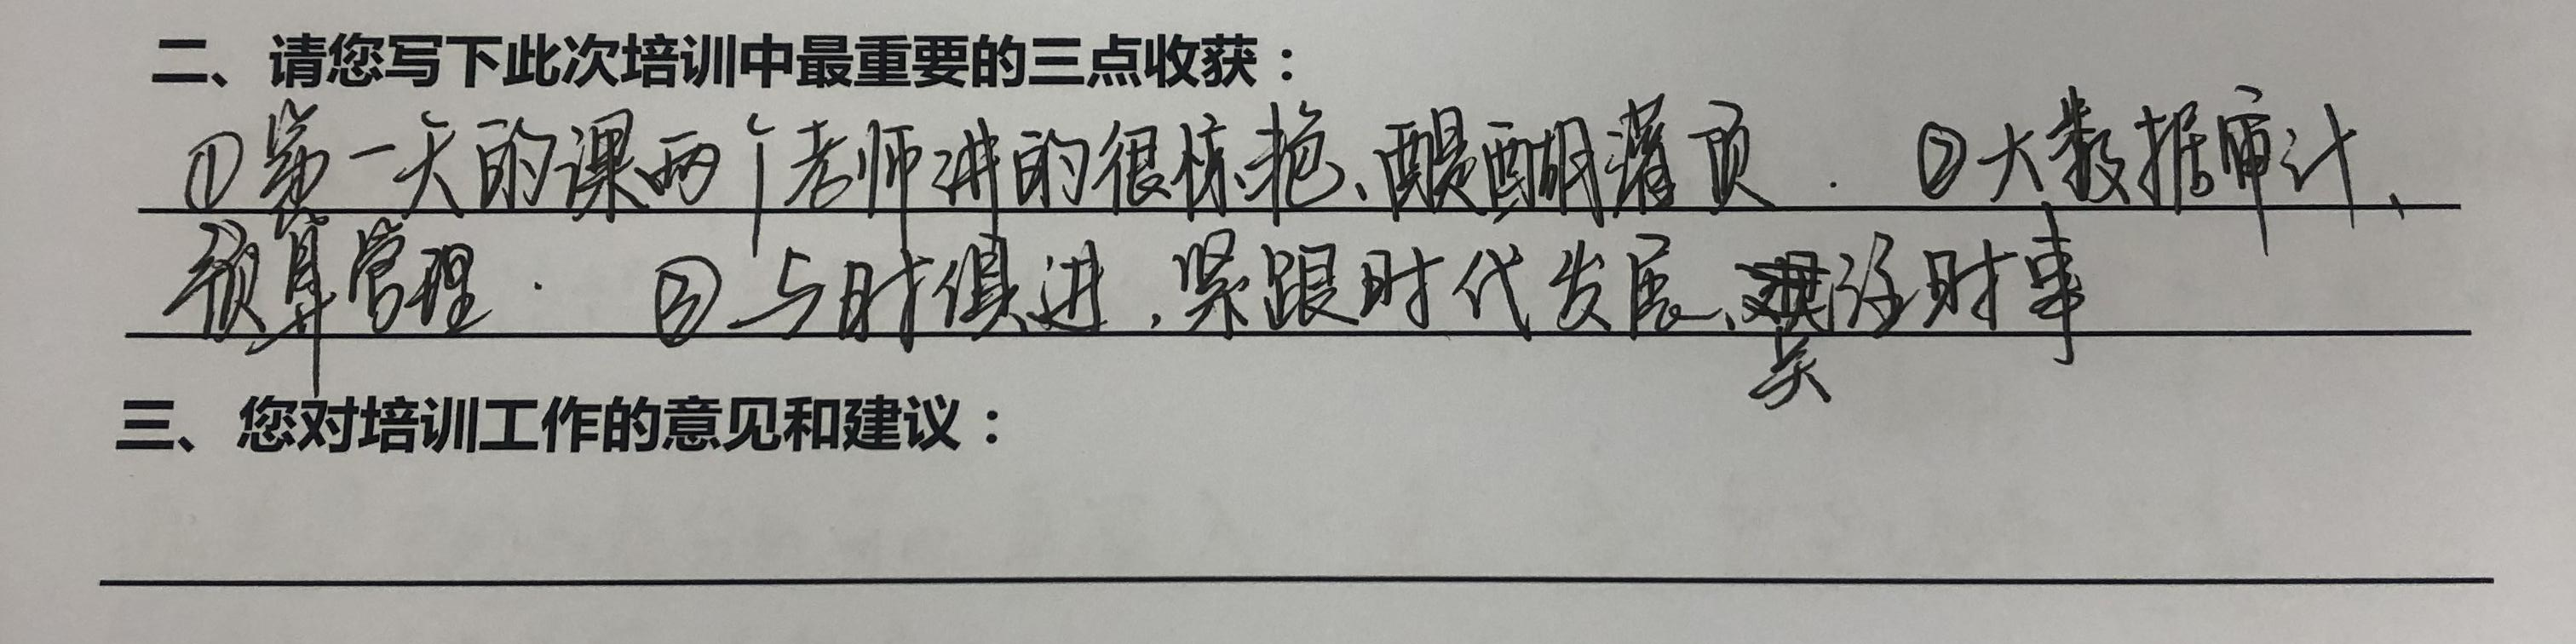 二、请您写下此次培训中最重要的三点收获：
①第一天的课两个老师讲的很惊艳、醍醐灌顶. ②大数据审计、
预算管理. ③与时俱进,紧跟时代发展、关注时事
三、您对培训工作的意见和建议：